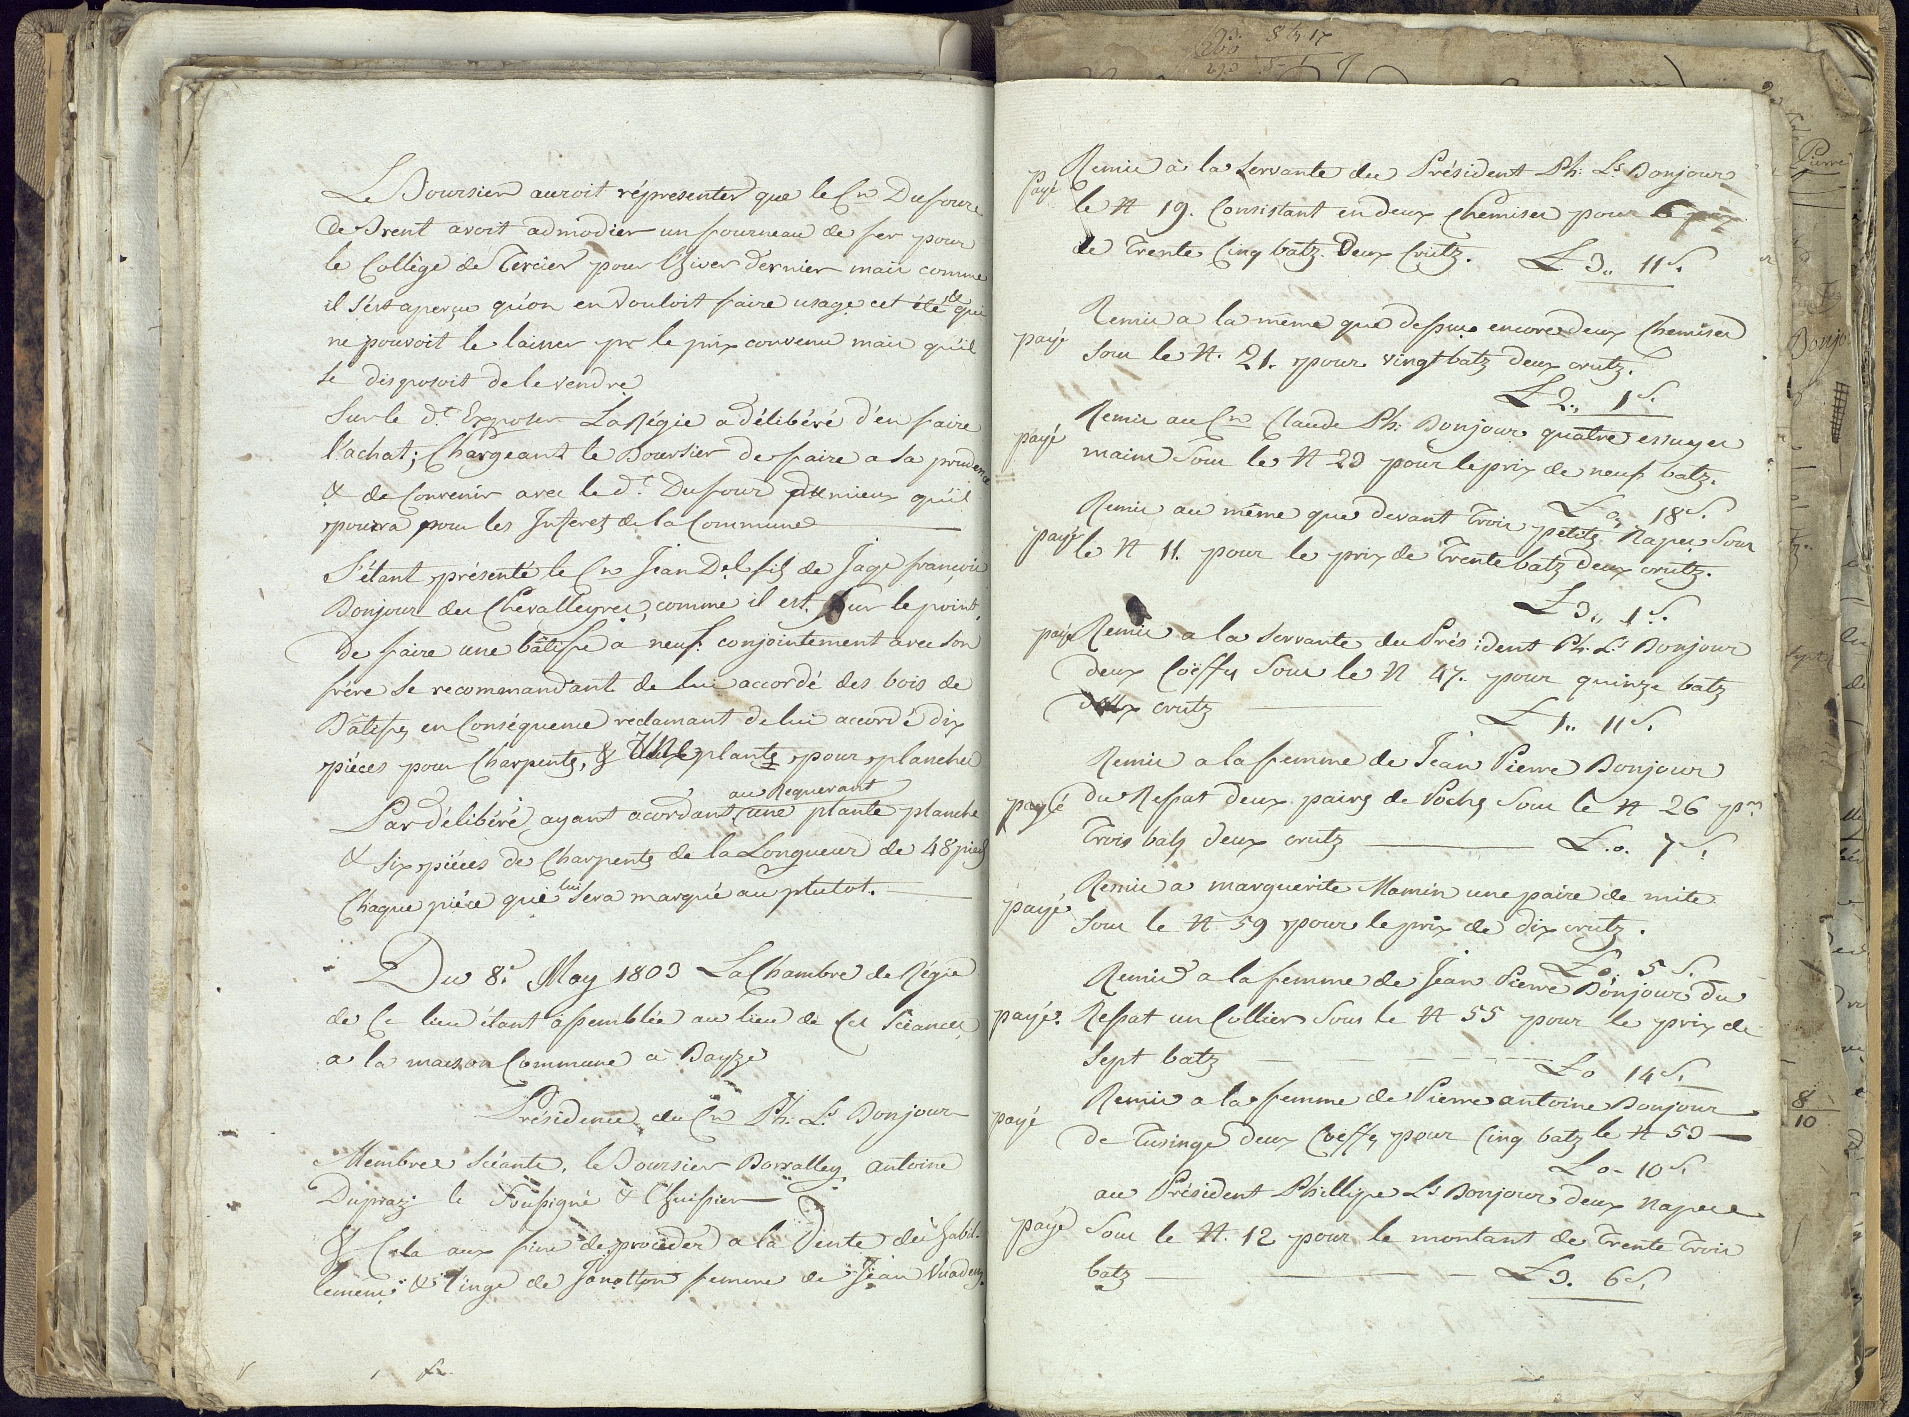 Le Boursier auroit réprésenter que le Cn Dufour
de Brent avoit admodier un fourneau de fer pour
le Collège de Tercier pour l'hiver dernier mais comme
il s'est aperçue qu'on en vouloit faire usage cet été qui
ne pouvoit le laisser pr le prix convenu mais qu'il
se disposoit de le vendre
Sur le dt Exposer La Régie a délibéré d'en faire
l'achat; Chargeant le Boursier de faire a sa prudence
& de Convenir avec le dt Dufour du mieux qu'il
pourra pour les Interets de la Commune
S'étant présenté le Cn Jean Del fils de Jaqe françois
Bonjour des Chevalleyres, comme il est sur le point
de faire une bâtisse a neuf conjointement avec son
frère se recommandant de lui accordé des bois de
Bâtisse en Conséquence reclamant de lui accordé dix
pièces pour Charpente, & une plante pour planches
au Requerant
Par délibéré ayant acordant une plante planche
& six pièces de Charpente de la Longueur de 48 pieds
Chaque pièce qui lui sera marqué au plutot.
Du 8e May 1803 La Chambre de Régie
de Ce lieu étant assemblée au lieu de Ces Séances
a la maison Commune a Bayze
Présidence du Cn Ph: Ls Bonjour
Membres Séants, le Boursier Borralley, antoine
Dupraz le Soussigné & l'huissier
& Cela aux fins de procéder a la Vente des habil-
lements & linge de Janotton femme de Jean Vuadens
payé Remis à la Servante du Président Ph: Ls Bonjour
le N 19. Consistant en deux Chemises pour
de Trente Cinq batz Deux Crutz. L 3,, 11 S.
payé Remis a la même que dessus encore deux Chemises
sous le N. 21. pour vingt batz deux crutz.
L 2,, 1 S.
payé Remis au Cn Claude Ph: Bonjour quatre essuyes
mains sous le N 23 pour le prix de neuf batz.
L 0,, 18 S.
payé Remis au même que devant trois petites Napes sous
le N 11. pour le prix de Trente batz deux crutz.
L 3,, 1 S.
payé Remis a la Servante du Président Ph. Ls Bonjour
deux Coëffes sous le N 47. pour quinze batz
deux crutz L 1,, 11 S.
payé Remis a la femme de Jean Pierre Bonjour
du Ressat deux pairs de Poches sous le N 26 pr
Trois batz deux crutz L. 0. 7 S.
payé Remis a marguerite Mamin une paire de mite
sous le N 59 pour le prix de dix crutz.
L 0. 5 S.
payé. Remis a la femme de Jean Pierre Bonjour du
Ressat un Collier sous le N 55 pour le prix de
Sept batz L 0 14 S.
payé Remis a la femme de Pierre antoine Bonjour
de Tusinge deux Coëffes pour Cinq batz le N 53
L 0 - 10 S.
payé au Président Phillipe Ls Bonjour deux napes
sous le N. 12 pour le montant de Trente Trois
batz L 3. 6 S.